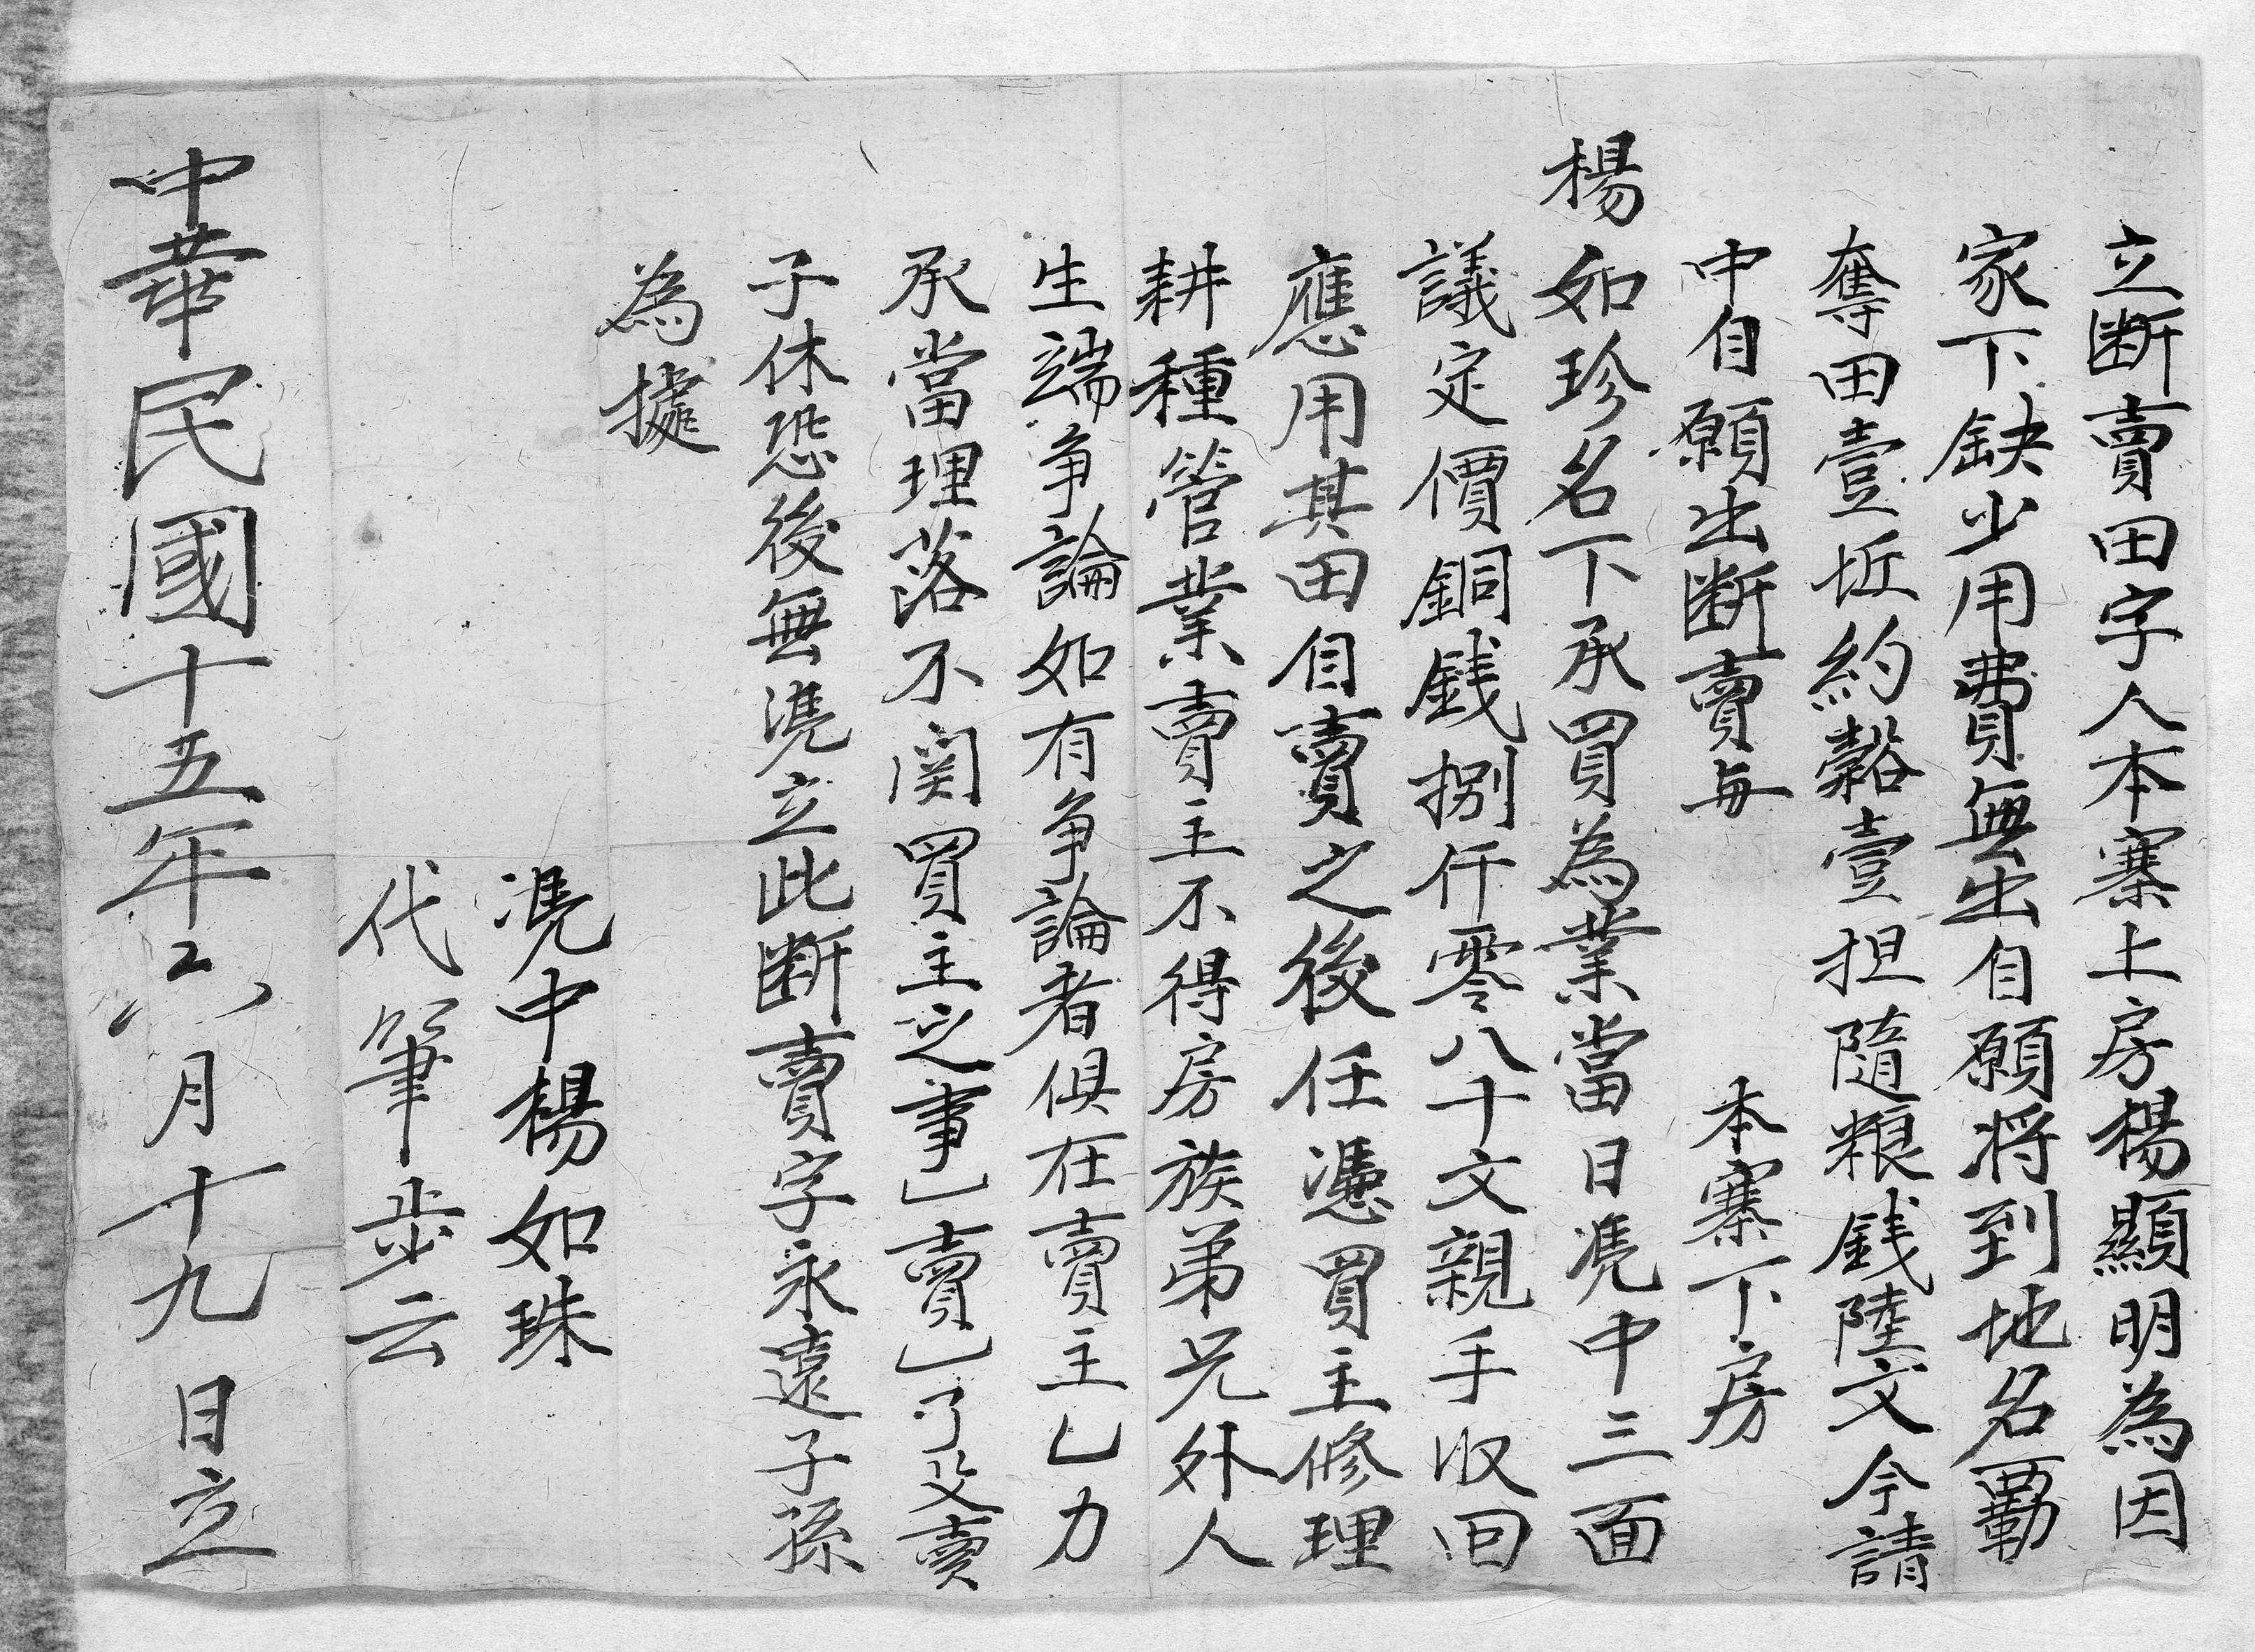 立断賣田字人本寨上房楊顯明為因
家下缺少用費無出自願将到地名覇
奪田壹坵約穀壹担随粮銭陸文今請
中自願出断賣与　本寨下房
楊如珍名下承買為業當日凴中三面
議定價銅銭捌仟零八十文親手收回
應用其田自賣之後任憑買主修理
耕種管業賣主不得房族弟兄外人
生端争論如有争論者俱在賣主乚力
承當理落不関買主之事乚賣乚了父賣
子休恐後無凴立此断賣字永遠子孫
為據
凴中楊如珠
代筆步云
中華民國十五年六月十九日立